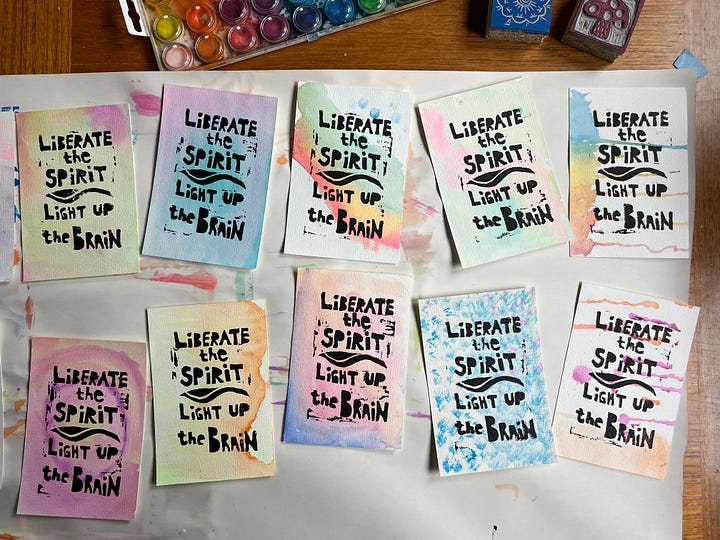 LiBERATE
the
SPiRiT
LiGHT UP
the BRAiN
LiBERATE
the
SPiRiT
LiGHT UP
the BRAiN
LiBERATE
the
SPiRiT
LiGHT UP
the BRAiN
LiBERATE
the
SPiRiT
LiGHT UP
the BRAiN
LiBERATE
the
SPiRiT
LiGHT UP
the BRAiN
LiBERATE
the
SPiRiT
LiGHT UP
the BRAiN
LiBERATE
the
SPiRiT
LiGHT UP
the BRAiN
LiBERATE
the
SPiRiT
LiGHT UP
the BRAiN
LiBERATE
the
SPiRiT
LiGHT UP
the BRAiN
LiBERATE
the
SPiRiT
LiGHT UP
the BRAiN